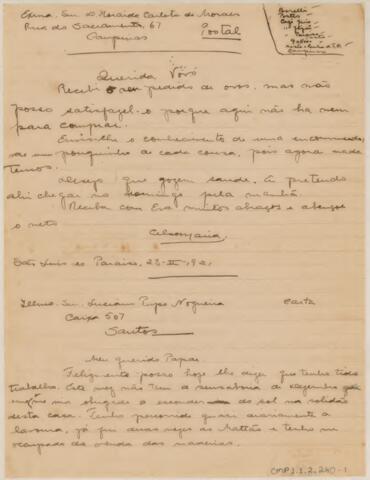 Exma. Snr. D. Horaido Carlota de Moraes
Rua do Sacramento, 67 Postal
Campinas
Campinas
Querida Vovó
Recebi o seu pedido de ovos, mas não
posso satisfazel-o porque aqui não ha nem
para comprar.
Envio lhe o conhecimento de uma encommenda
de um pouquinho de cada cousa, pois agora nada
temos.
desejo que gozem saude. Eu pretendo
ahi chegar no domingo pela manhã.
Receba com Eva muitos abraços e abençoe
o neto
Celso Maria
São Luis do Paraiso, 23-III-921
Illmo. Snr. Luciano Pupo Nogueira carta
Caixa 507
Santos
Meu querido Papae
Felizmente posso hoje lhe dizer que tenho tido
trabalho. Esta vez não tem a sensaboria de
me obrigado a esconder do sol na solidão
desta casa. Tenho percorrido quasi diariamente a
lavoura, já fui duas vezes ao Mattão e tenho me
ocupado da venda das madeiras.
CMP.1.1.2.240-1